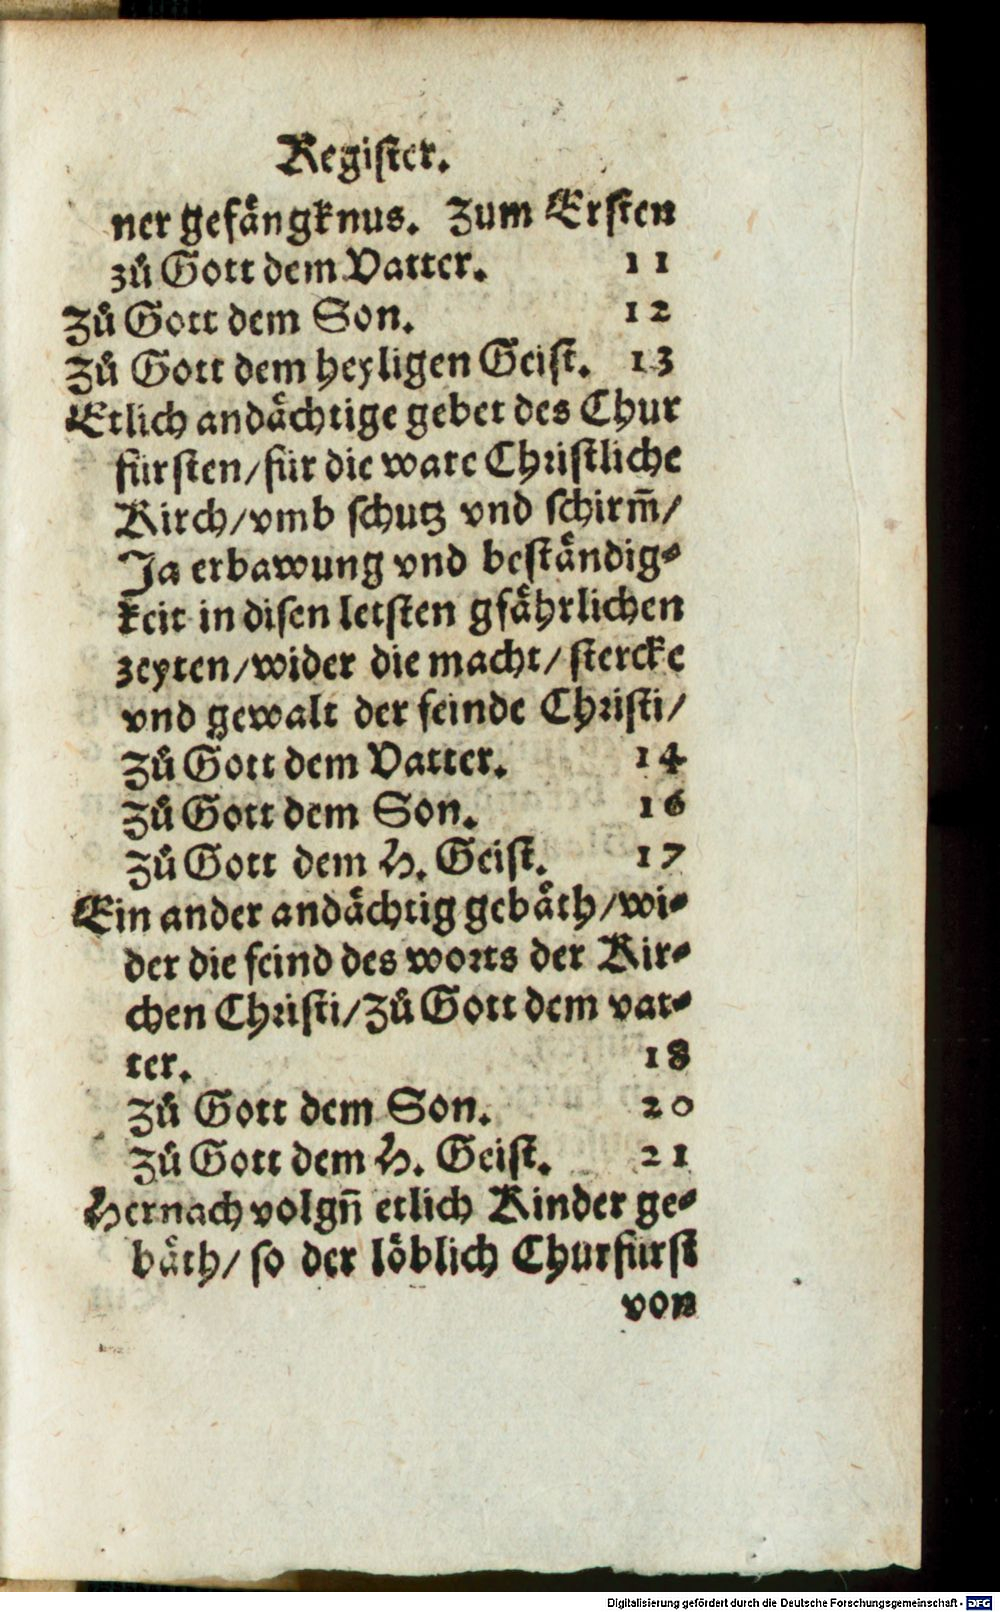 Register.
ner gefängknus. Zum Ersten
zů Gott dem Vatter. 11
Zů Gott dem Son. 12
Zů Gott dem heyligen Geist. 13
Etlich andächtige gebet des Chur
fürsten/für die ware Christliche
Kirch/vmb schutz vnd schirm̃/
Ja erbawung vnd beständig⸗
keit in disen letsten gfährlichen
zeyten/wider die macht/stercke
vnd gewalt der feinde Christi/
Zů Gott dem Vatter. 14
Zů Gott dem Son. 16
Zů Gott dem H. Geist. 17
Ein ander andächtig gebäth/wi⸗
der die feind des worts der Kir⸗
chen Christi/Zů Gott dem vat⸗
ter. 18
Zů Gott dem Son. 20
Zů Gott dem H. Geist. 21
Hernach volgn̄ etlich Kinder ge⸗
bäth/ so der löblich Churfürst
von
Digitalisierung gefördert durch die Deutsche Forschungsgemeinschaft - DFG